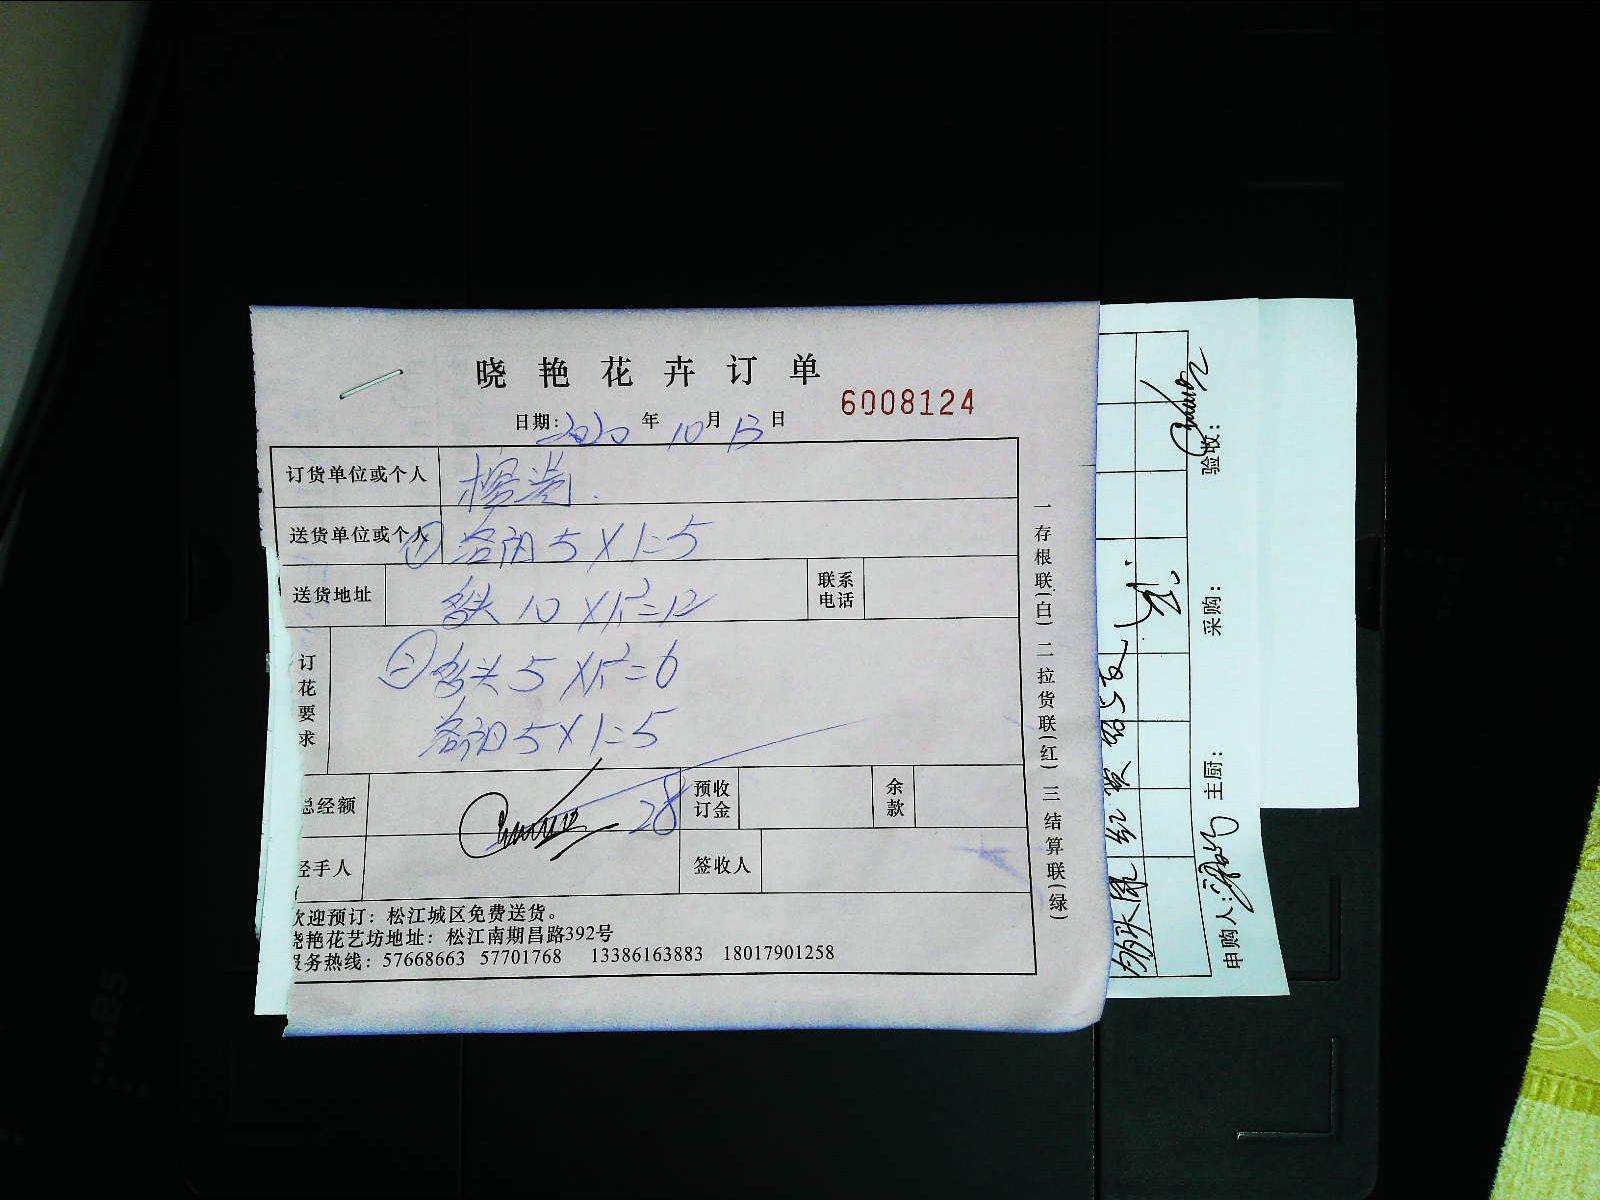 晓艳花卉订单
6008124
日期: 2020 年 10 月 13 日
订货单位或个人
送货单位或个人 ① 洛阳 5 X 1=5
送货地址 多头 10 X 1.2=12 联系电话
订花要求 ② 多头 5 X 1.2=6
洛阳 5 X 1=5
总经额 28 预收订金 余款
经手人 签收人
欢迎预订: 松江城区免费送货。
晓艳花艺坊地址: 松江南期昌路392号
服务热线: 57668663 57701768 13386163883 18017901258
一存根联(白) 二拉货联(红) 三结算联(绿)
申购人: 主厨: 采购: 验收: